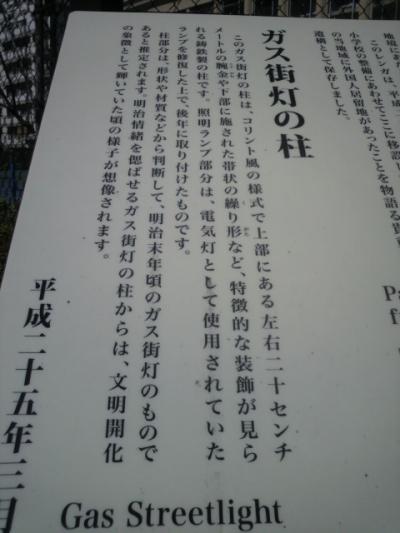 地境にあた
このレンガは、平成
小学校の整備にあわせてここに移設し
の当地域に外国人居留地があったことを物語る貴
遺構として保存しました。
ガス街灯の柱
このガス街灯の柱は、コリント風の様式で上部にある左右二十センチ
メートルの腕金や下部に施された帯状の繰り形など、特徴的な装飾が見ら
れる鋳鉄製の柱です。照明ランプ部分は、電気灯として使用されていた
ランプを修復した上で、後年に取り付けたものです。
柱部分は、形状や材質などから判断して、明治末年頃のガス街灯のもので
あると推定されます。明治情緒を偲ばせるガス街灯の柱からは、文明開化
の象徴として輝いていた頃の様子が想像されます。
平成二十五年三月
Gas Streetlight